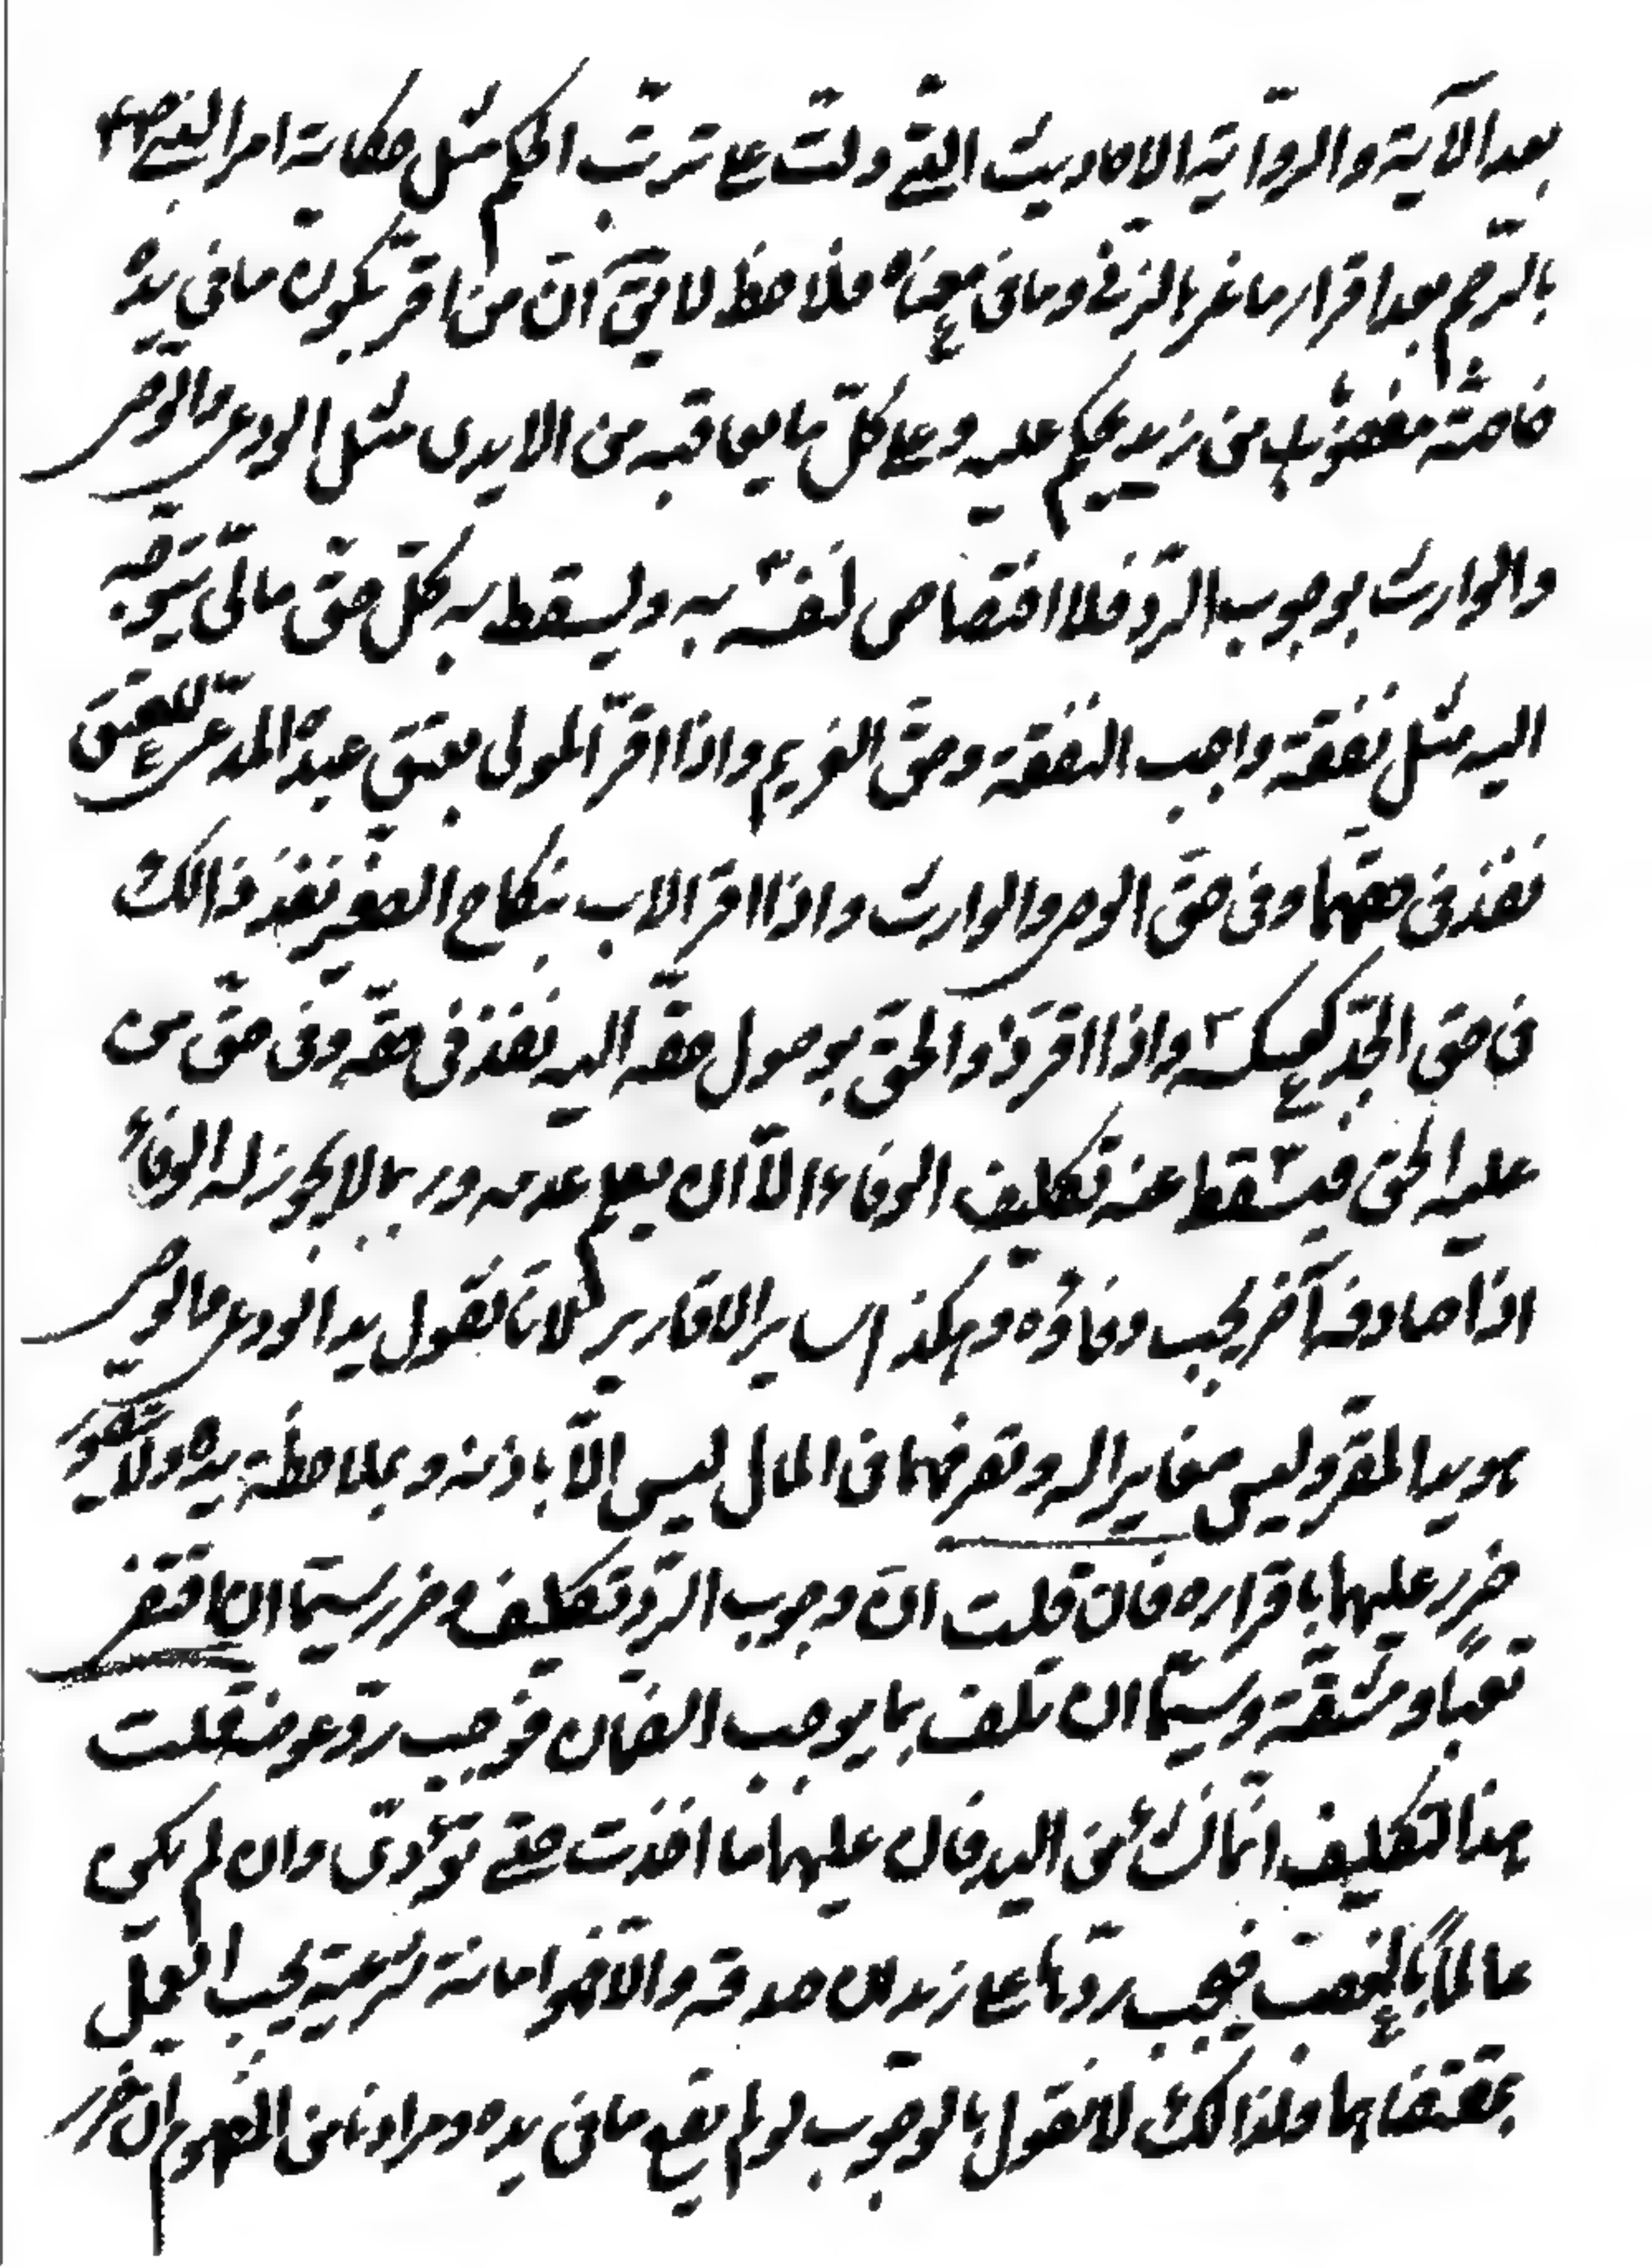 بعد الآية والرواية الاحاديث التي دلت على ترتب الحكم مثل حكاية امر النبي ص
بالرجم بعد اقرار ماغر بالزنى وما في معناه فلاحظ لا يقال ان من اقر بكون ما في يده
خاصة مغصوبا من زيد يحكم عليه وعلى كل ما يعاقبه من الايدى مثل الودعى والوصى
والوارث بوجوب الرد فلا اختصاص لنفسه به ويسقط به كل حق مالى يتوجه
اليه مثل نفقة واجب النفقة وحق الغريم واذا اقر المولى بعتق عبده المدعى للعتق
نفذ فى حقهما وفى حق الوصى والوارث واذا اقر الاب بنكاح الصغير نفذ ذالك
فى حق الجد كعكسه واذا اقر ذو الحق بوصول حقه اليه نفذ فى حقه وفى حق من
عليه الحق فيسقط عنه تكليف الوفاء الا ان يعلم عدمه وربما لا يجوز له الوفاء
اذا صادف آخر يجب وفاؤه وهكذا ساير الاقارير لانا نقول يد الودعى والوصى
هو يد المقر وليس مغايرا له وتصرفهما فى المال ليس الا باذنه وبملاحظة يده ولا يتصور
ضرر عليهما باقراره فان قلت ان وجوب الرد تكليف وضرر سيما ان اقتضى
تعبا ومشقة وسيما ان تلف بما يوجب الضمان فوجب رد عوضه قلت
هذا لتكليف انما نشأ من اليد فان عليهما ما اخذت حتى تؤدى وان لم يكن
عالما بالغصب فيجب ردها على زيد ان صدقه والا فهو امانة شرعية يجب العمل
بمقتضاها ولذالك لا نقول بالوجوب لو لم يقع ما فى يده ومرادنا من المفهوم ان ضرر